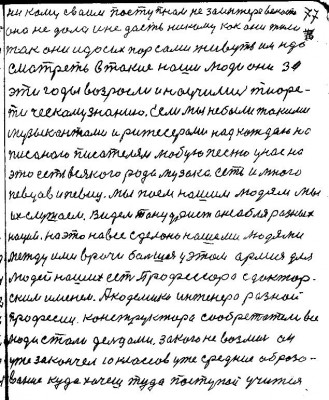 никому своим поступкам не заинтересовать
оно не дало и не даст никому как они жили
так они и до сих пор сами живут им надо
смотреть в такие наши люди они за
эти годы возросли и научили теоре-
тическому знанию. Если мы не были такими
музыкантами и режесерами на каждую на
писаного писателям любую песню у нас на
это есть всякого рода музыка есть и много
певцов и певиц. мы поем нашим людям мы
их слушаем. Видел танцы разных
наций. на это на все сделано нашими людями
между ими врачи большая у этом армия для
людей наших есть Профессора с доктор-
ским именем. Академики инженера разной
профессии. конструктора сообретатели все
люди стали делами, за кого не возмись он
уже закончел 10 классов уже средние оброзо-
вание куда хочеш туда поступай учится